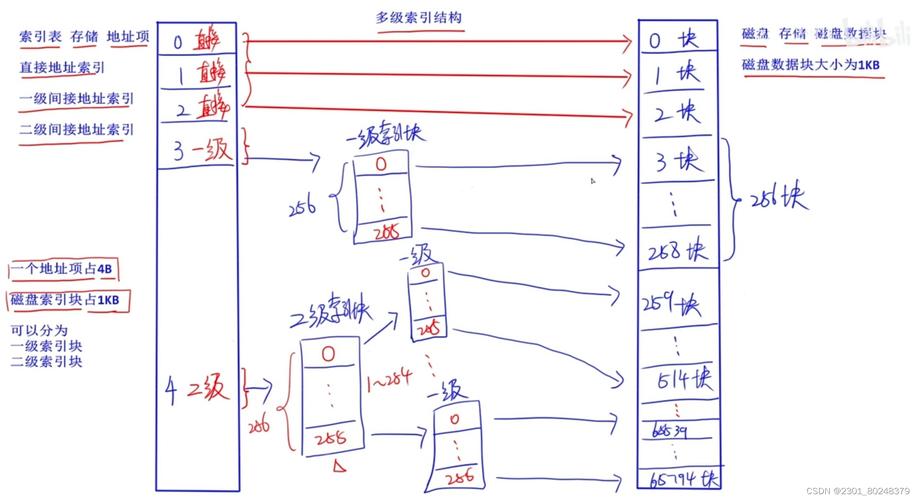 多级索引结构
索引表 存储 地址项
直接地址索引
一级间接地址索引
二级间接地址索引
一个地址项占4B
磁盘索引块占1KB
可以分为
一级索引块
二级索引块
0 直接
1 直接
2 直接
3 一级
4 二级
一级索引块
256
0
255
二级索引块
256
0
255
1~254
一级
0
255
一级
0
256
0 块
1 块
2 块
3 块
258 块
256块
259块
514块
65539
65794块
磁盘 存储 磁盘数据块
磁盘数据块大小为1KB
CSDN @2301_80248379